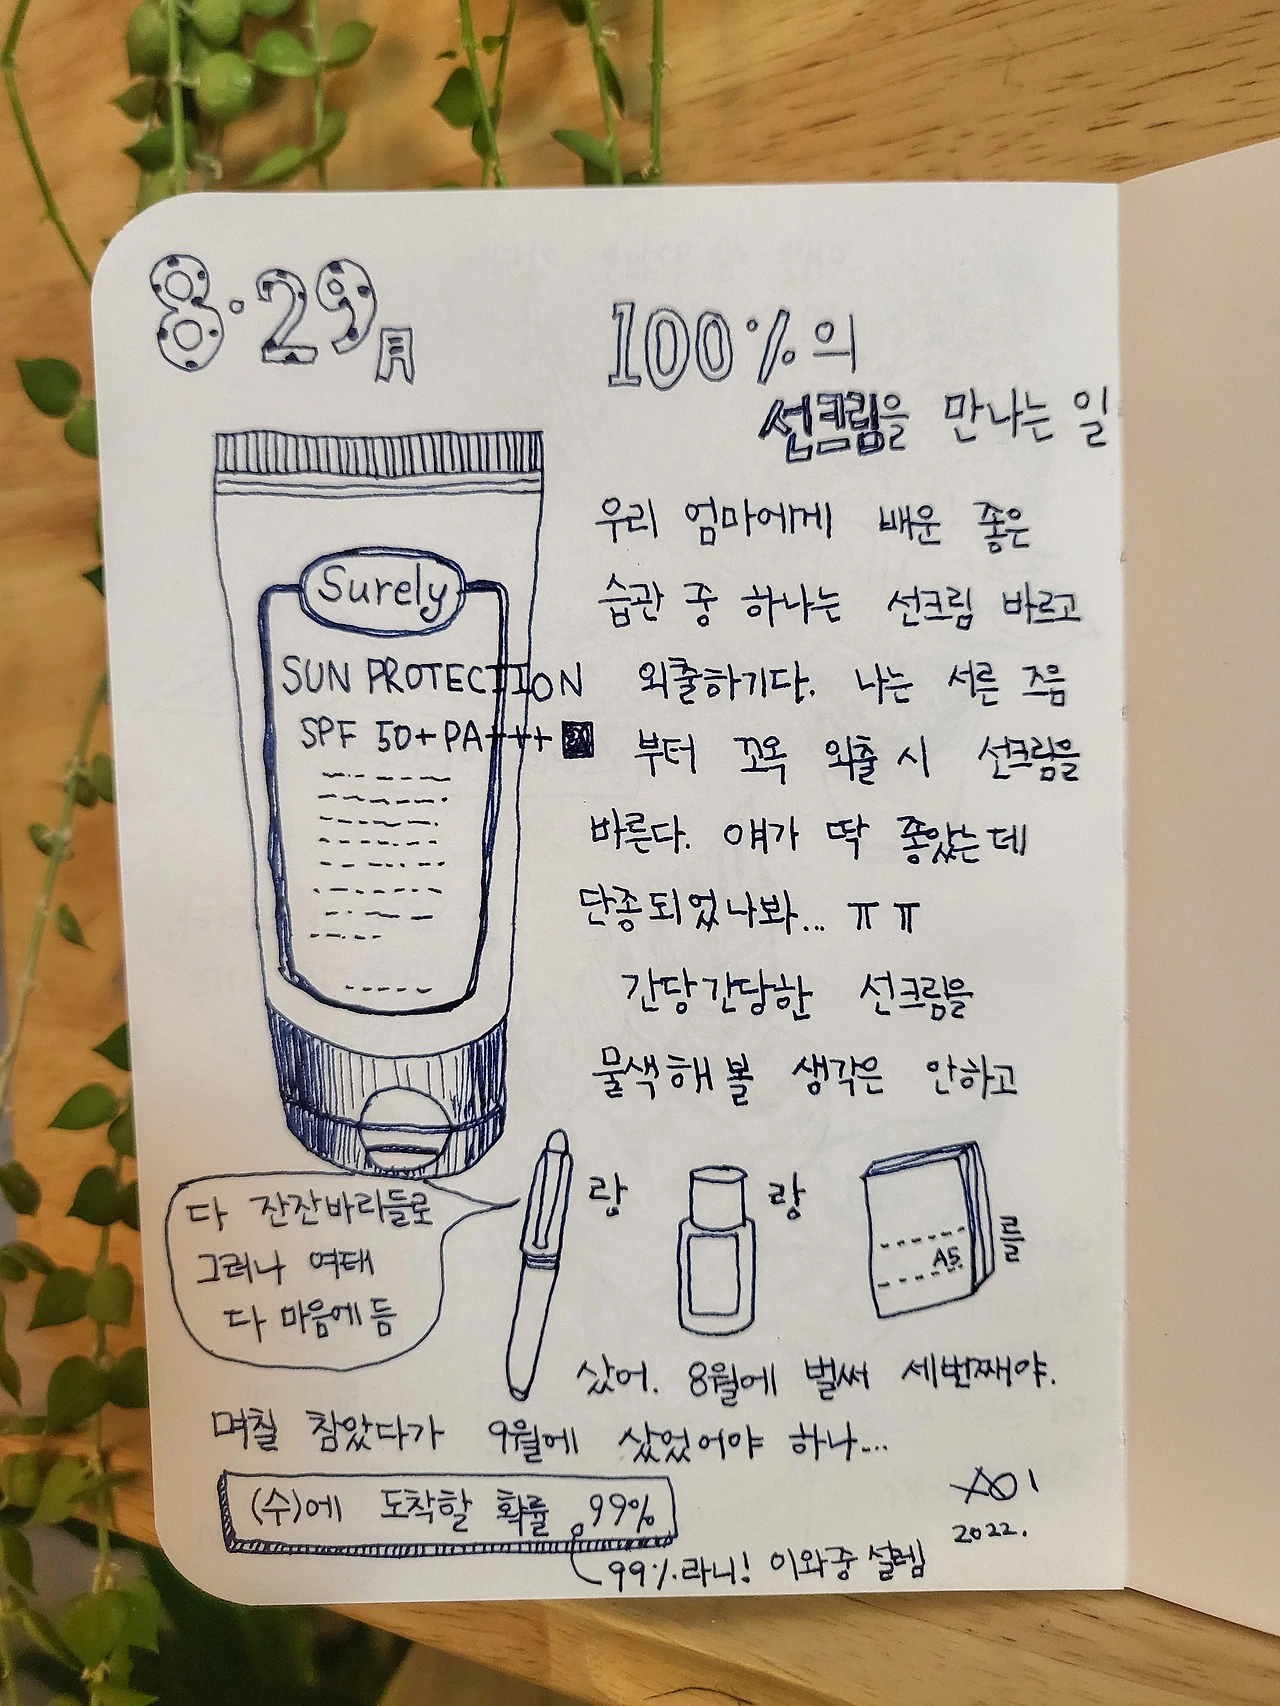 8.29月
100%의
선크림을 만나는 일
Surely
SUN PROTECTION
SPF 50+ PA+++
우리 엄마에게 배운 좋은
습관 중 하나는 선크림 바르고
외출하기다. 나는 서른 즈음
부터 꼬옥 외출 시 선크림을
바른다. 얘가 딱 좋았는데
단종되었나봐... ㅠㅠ
간당간당한 선크림을
물색해 볼 생각은 안하고
랑
랑
A5.
를
다 잔잔바리들로
그러나 여태
다 마음에 듬
샀어. 8월에 벌써 세번째야.
며칠 참았다가 9월에 샀었어야 하나...
(수)에 도착할 확률 99%
99%라니! 이와중 설렘
2022.